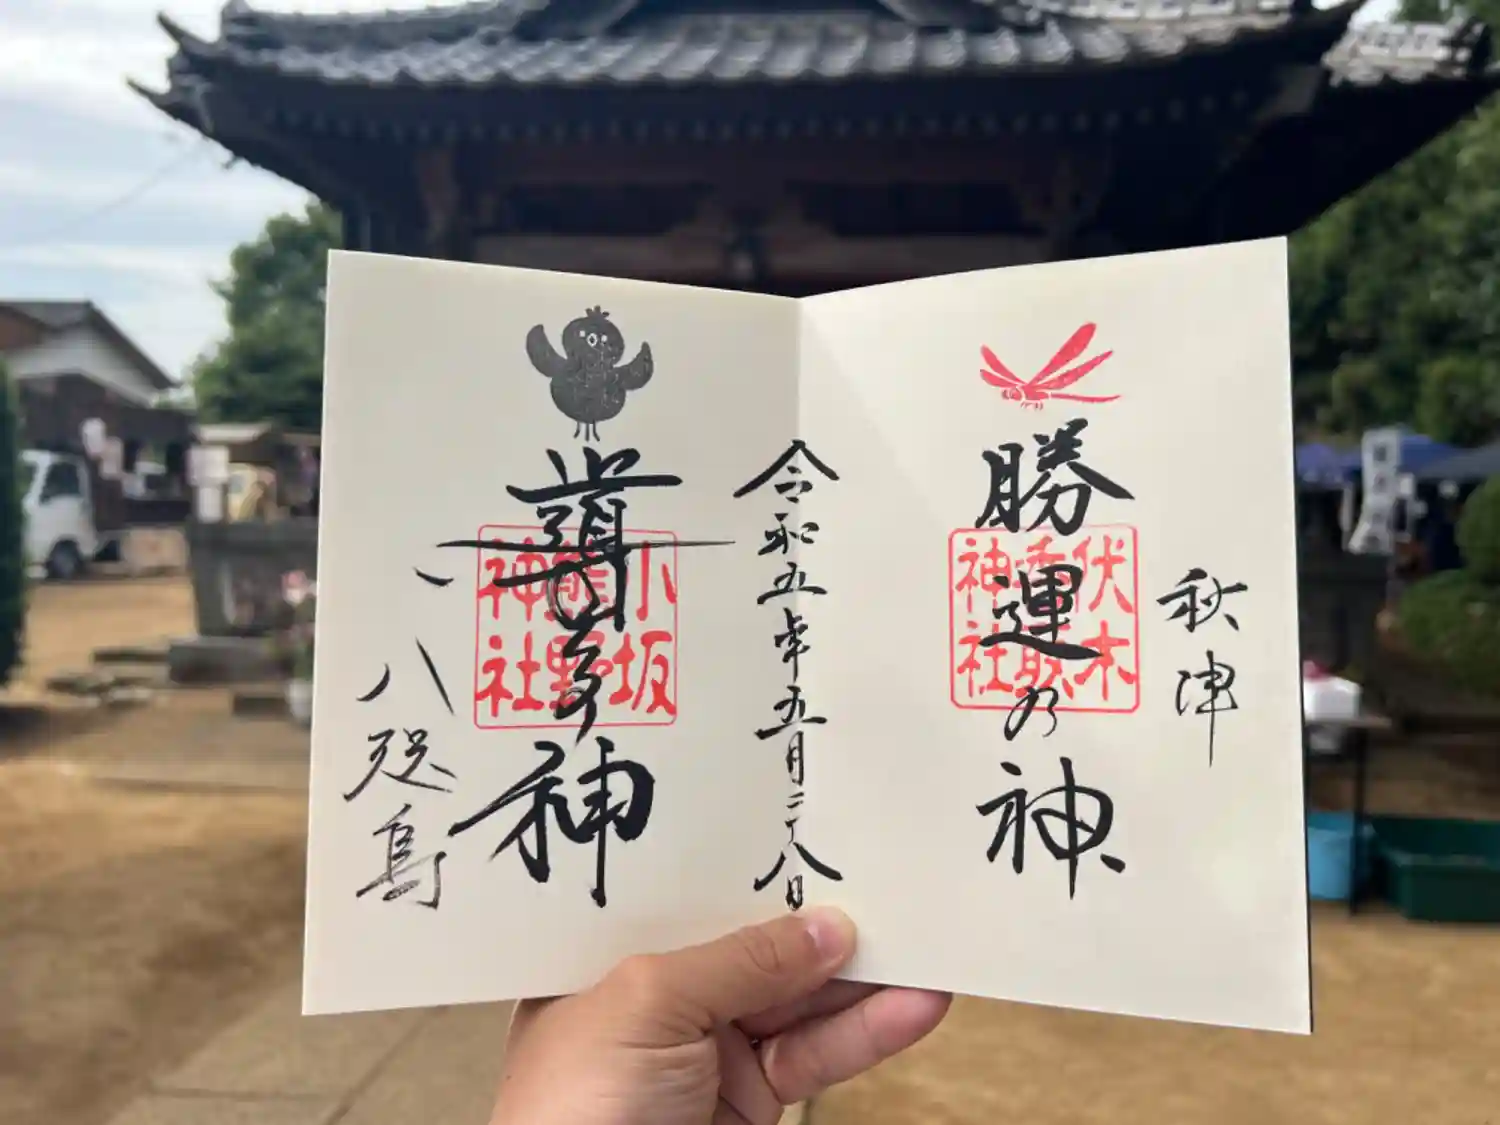 秋津
勝運の神
伏木香取神社
令和五年五月二十八日
導きの神
小坂熊野神社
八咫烏